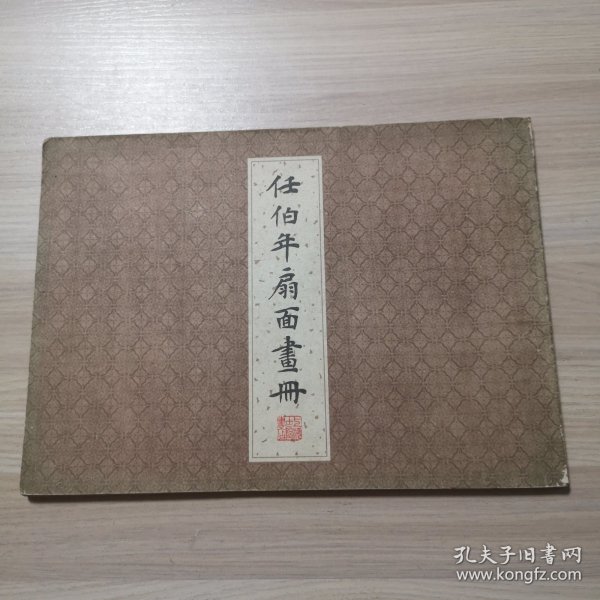 任伯年扇面畫冊
孔夫子旧書网
www.kongfz.com